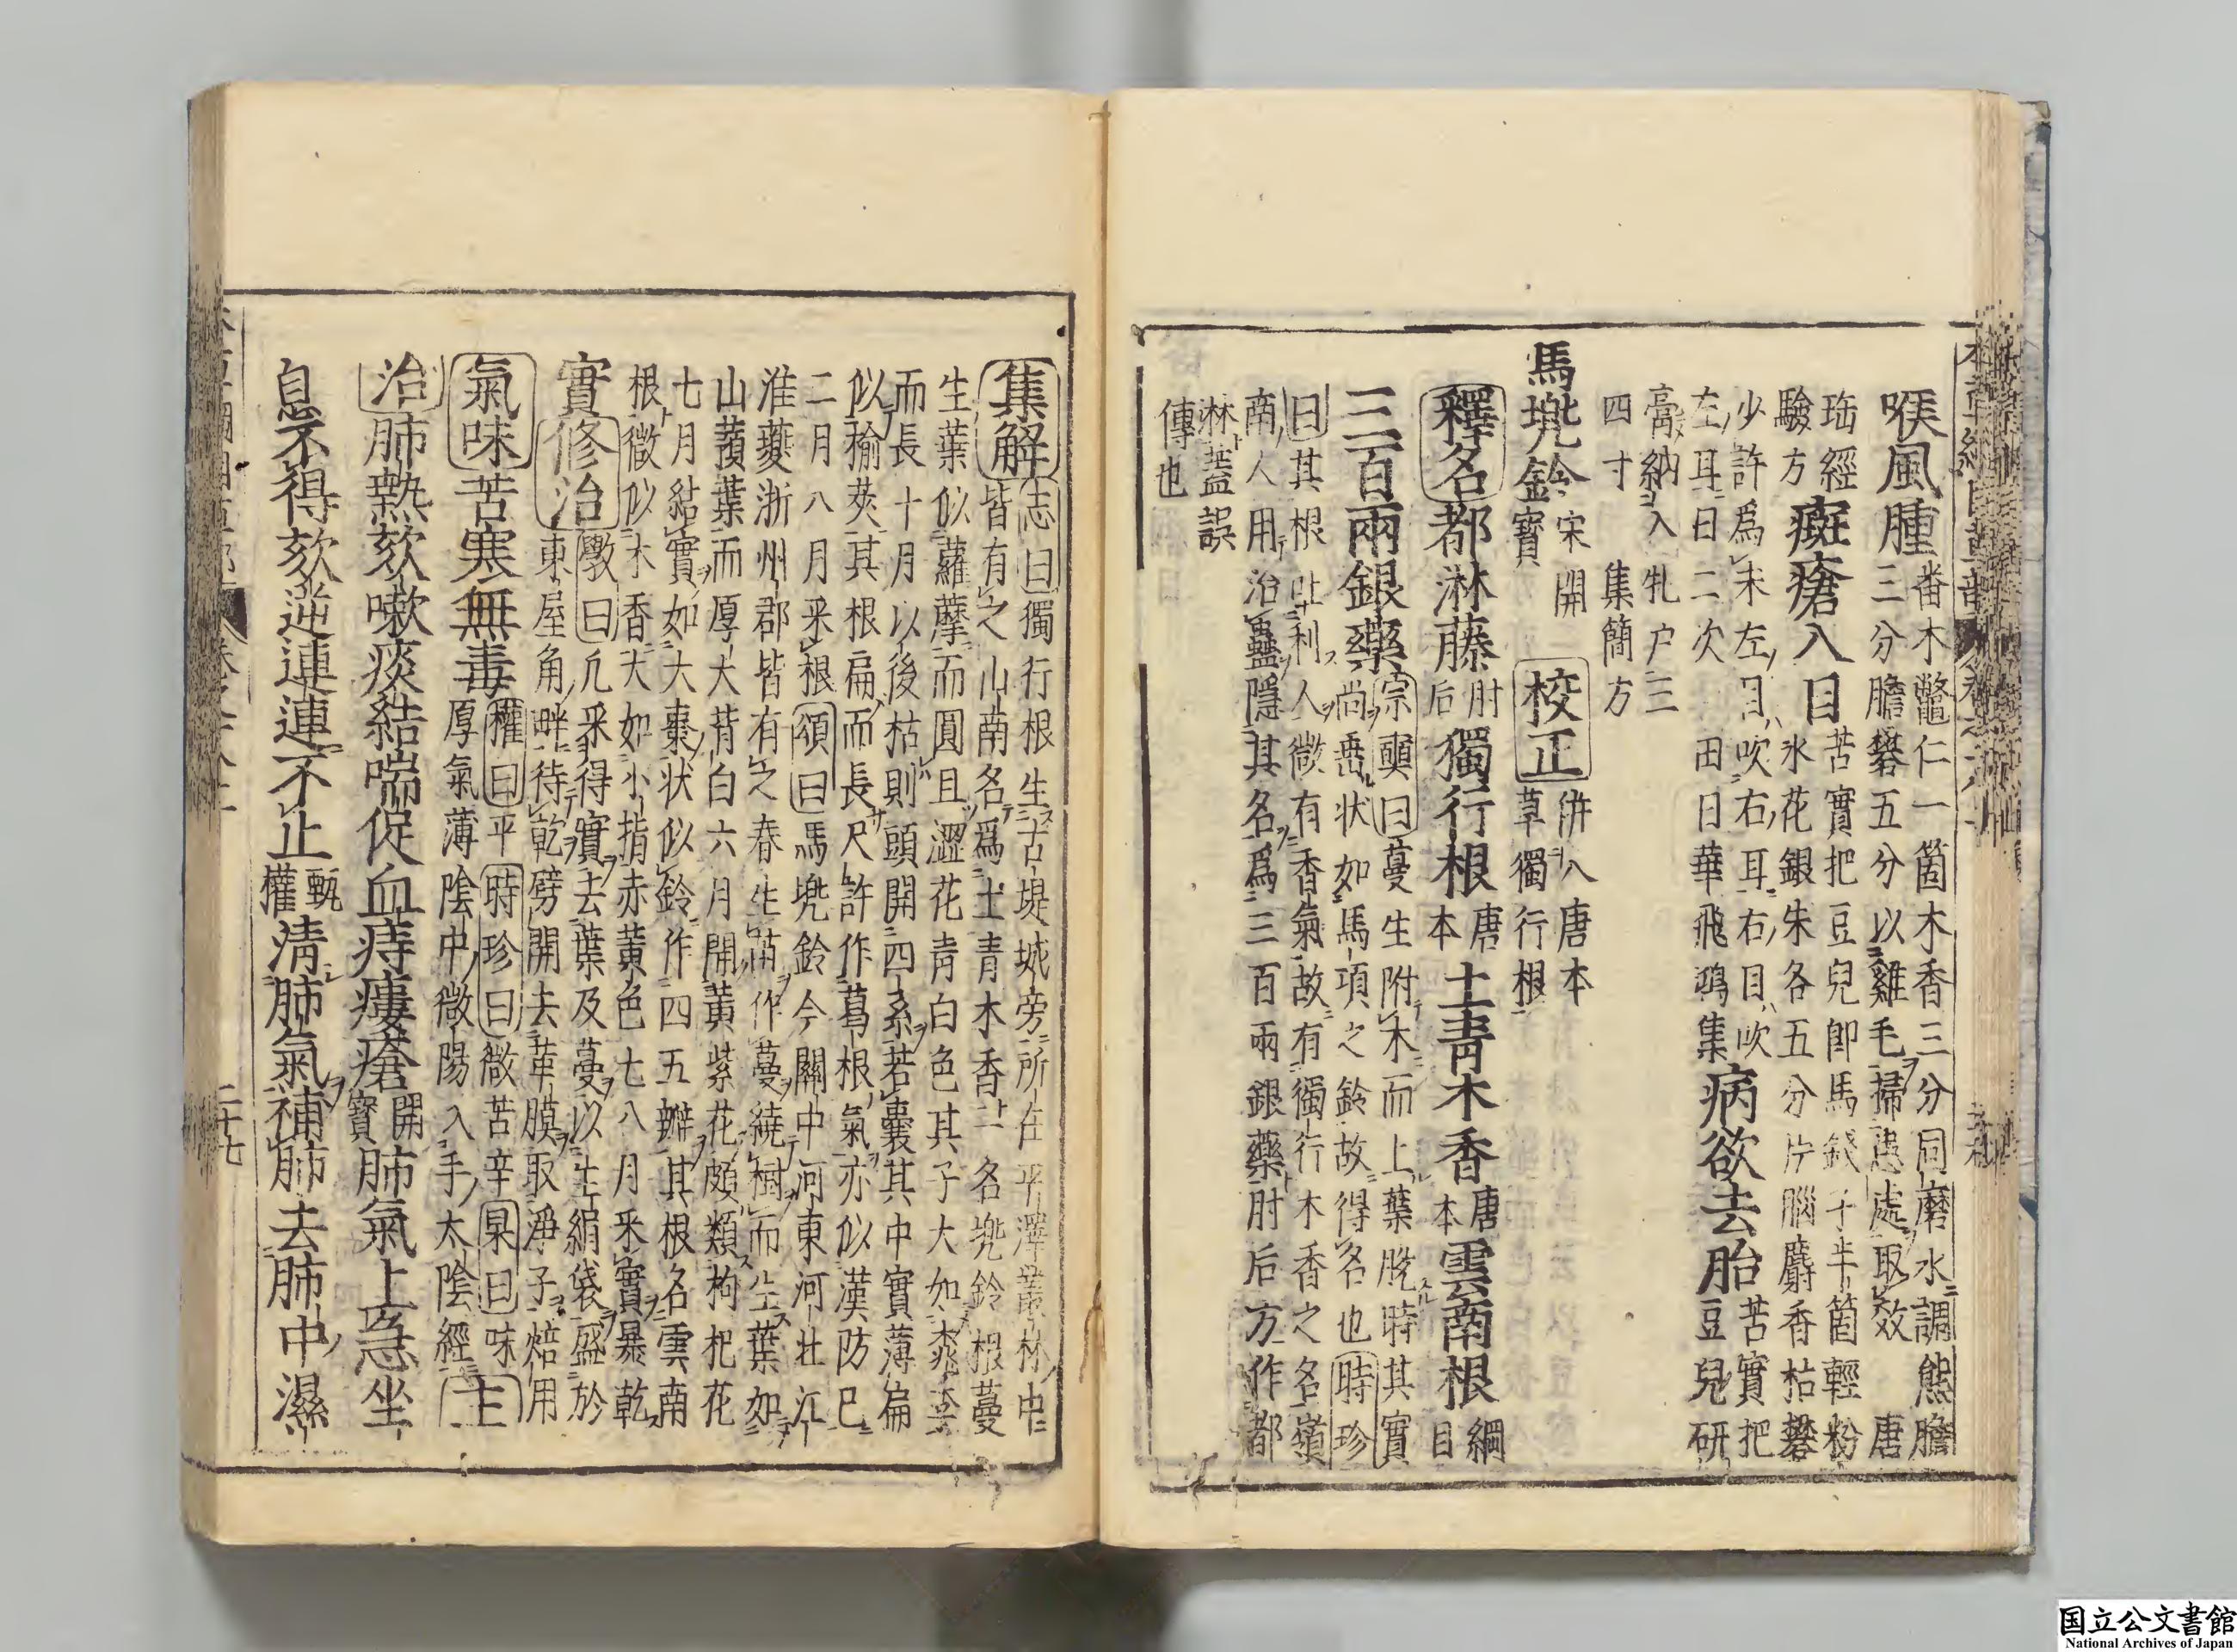 喉風腫番木鼈仁一箇木香三分同磨水調熊膽
三分膽礬五分以雞毛掃患處取效 唐
瑶經
驗方斑瘡入目苦實把豆兒卽馬錢子半箇輕粉
水花銀朱各五分片腦麝香枯礬
少許爲末左目吹右耳右目吹
左耳日二次 田日華飛鴻集病欲去胎苦實把
豆兒研
膏納入牝户三
四寸 集簡方
馬兠鈴宋開
寶校正併入唐本
草獨行根
釋名都淋藤肘
后獨行根唐
本土青木香唐
本雲南根綱
目
三百兩銀藥宗奭曰蔓生附木而上葉脫時其實
尚垂状如馬項之鈴故得名也時珍
曰其根吐利人微有香氣故有獨行木香之名嶺
南人用治蠱隱其名爲三百兩銀藥肘后方作都
淋蓋誤
傳也
集解志曰獨行根生古堤城旁所在平澤叢林中
皆有之山南名爲土青木香一名兠鈴根蔓
生葉似蘿藦而圓且澀花青白色其子大如桃李
而長十月以後枯則頭開四系若囊其中實薄扁
似榆莢其根扁而長尺許作葛根氣亦似漢防己
二月八月采根頌曰馬兠鈴今關中河東河北江
淮夔浙州郡皆有之春生苗作蔓繞樹而生葉如
山蕷葉而厚大背白六月開黃紫花頗類枸杞花
七月結實如大棗状似鈴作四五瓣其根名雲南
根微似木香大如小指赤黃色七八月采實暴乾
實修治斆曰凡采得實去葉及蔓以生絹袋盛於
東屋角畔待乾劈開去革膜取淨子焙用
氣味苦寒無毒權曰平時珍曰微苦辛杲曰味
厚氣薄陰中微陽入手太陰經主
治肺熱欬嗽痰結喘促血痔瘻瘡開
寶肺氣上急坐
息不得欬逆連連不止甄
權淸肺氣補肺去肺中濕
二十七
国立公文書館
National Archives of Japan